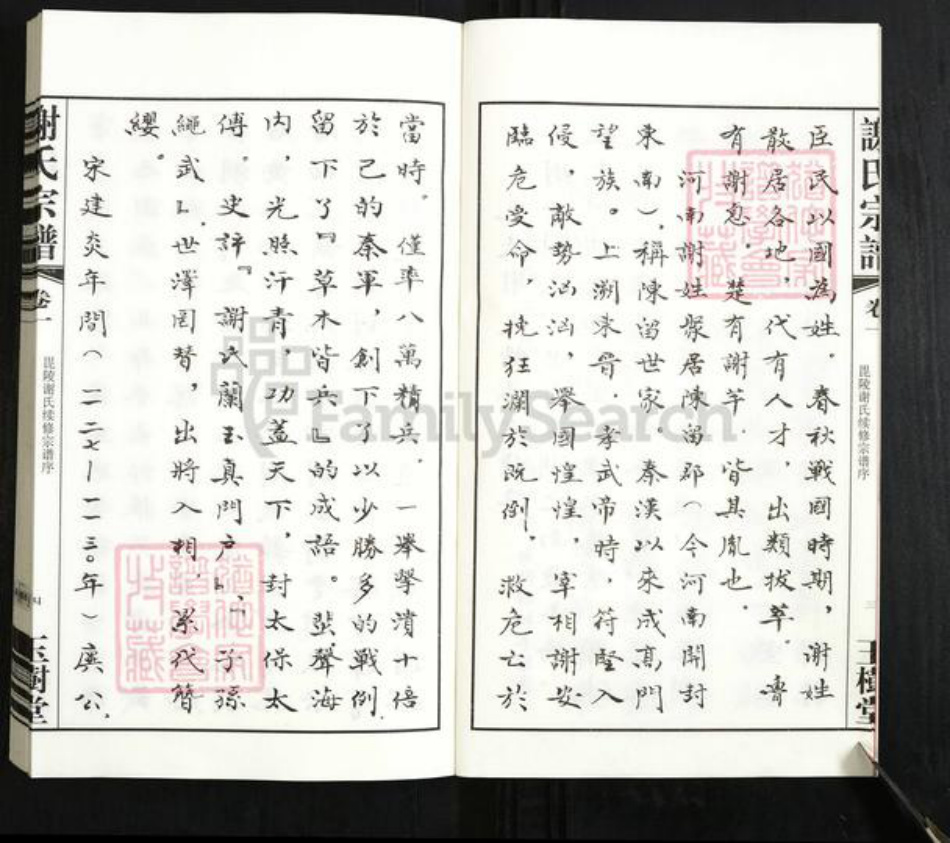 謝氏宗譜
卷一
毘陵谢氏续修宗谱序
三
玉樹堂
臣民以國為姓。春秋戰國時期，謝姓
散居各地，代有人才，出類拔萃。齊
有謝息，楚有謝竿，皆其胤也。
河南謝姓聚居陳留郡（今河南開封
東南），稱陳留世家。秦漢以來成高門
望族。上溯東晉，孝武帝時，符堅入
侵，敵勢汹汹，舉國惶惶，宰相謝安
臨危受命，挽狂瀾於既倒，救危亡於
當時。僅率八萬精兵，一舉擊潰十倍
於己的秦軍，創下了以少勝多的戰例，
留下了『草木皆兵』的成語。蜚聲海
内，光照汗青，功蓋天下，封太保太
傅。史評『謝氏蘭玉真門户』，『子孫
繩武』，世澤罔替，出將入相，累代簪
纓。
宋建炎年間（一一二七—一一三〇年）廣公，
謝氏宗譜
卷一
毘陵谢氏续修宗谱序
四
玉樹堂
FamilySearch